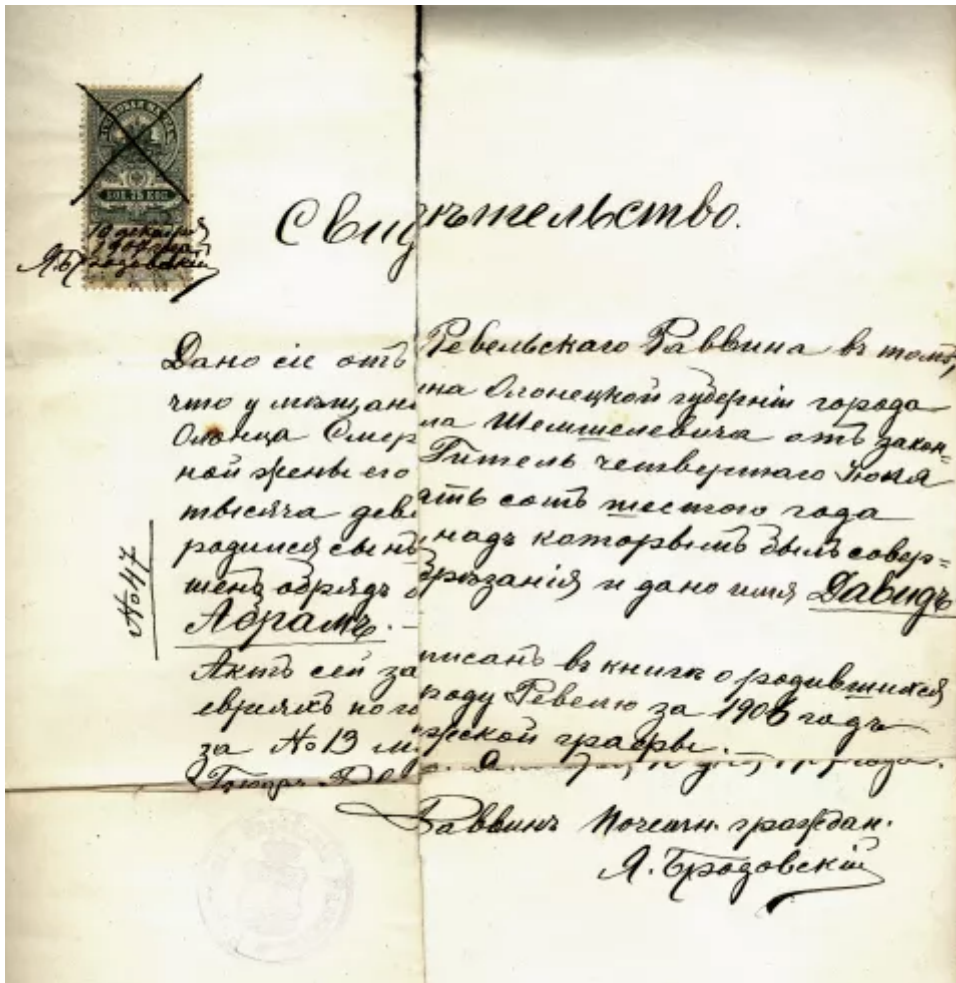 ГЕРБОВАЯ МАРКА
КОП. 75 КОП.
19 декабря
Я. Бродовскій
Свидѣтельство.
Дано сіе отъ Ревельскаго Раввина въ томъ,
что у мѣщанина Олонецкой губерніи города
Олонца Смерла Шемшелевича отъ закон=
ной жены его Гитель четвертаго Іюня
тысяча девятьсотъ шестого года
родился сынъ, надъ которымъ былъ совер=
шенъ обрядъ обрѣзанія и дано имя Давидъ
Абрамъ. —
Актъ сей записанъ въ книгѣ о родившихся
евреяхъ по городу Ревелю за 1906 годъ
за №13 мужской графы.
Раввинъ Почетн. граждан.
Я. Бродовскій
№47